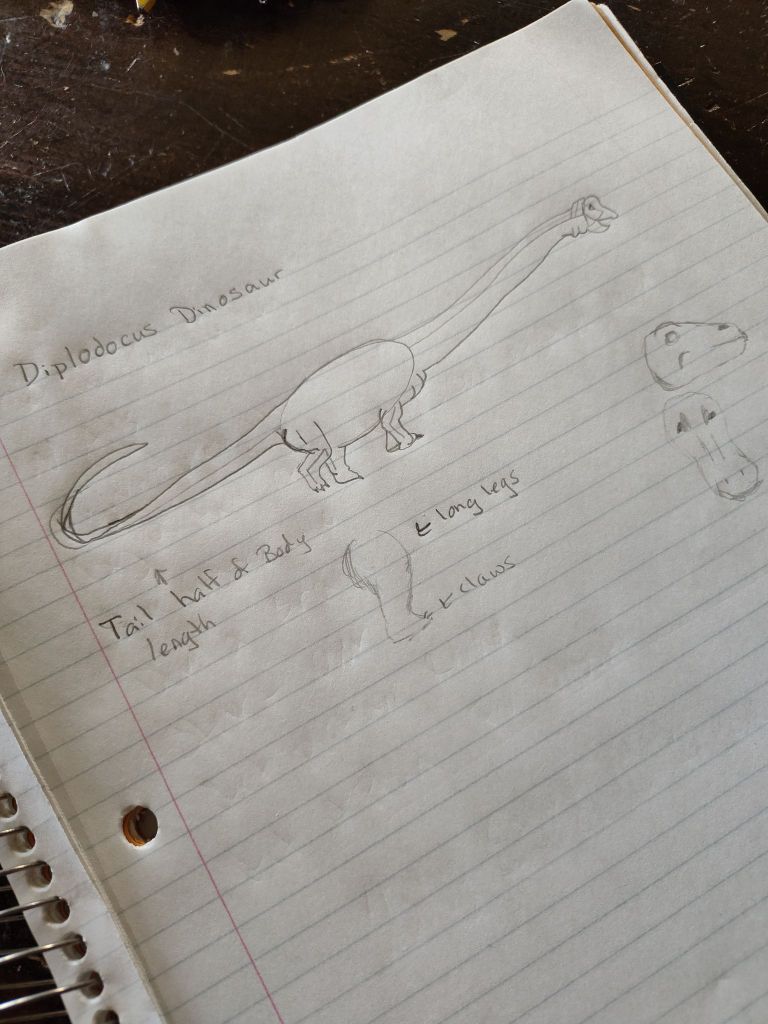 Diplodocus Dinosaur
Tail half of Body
length
long legs
claws